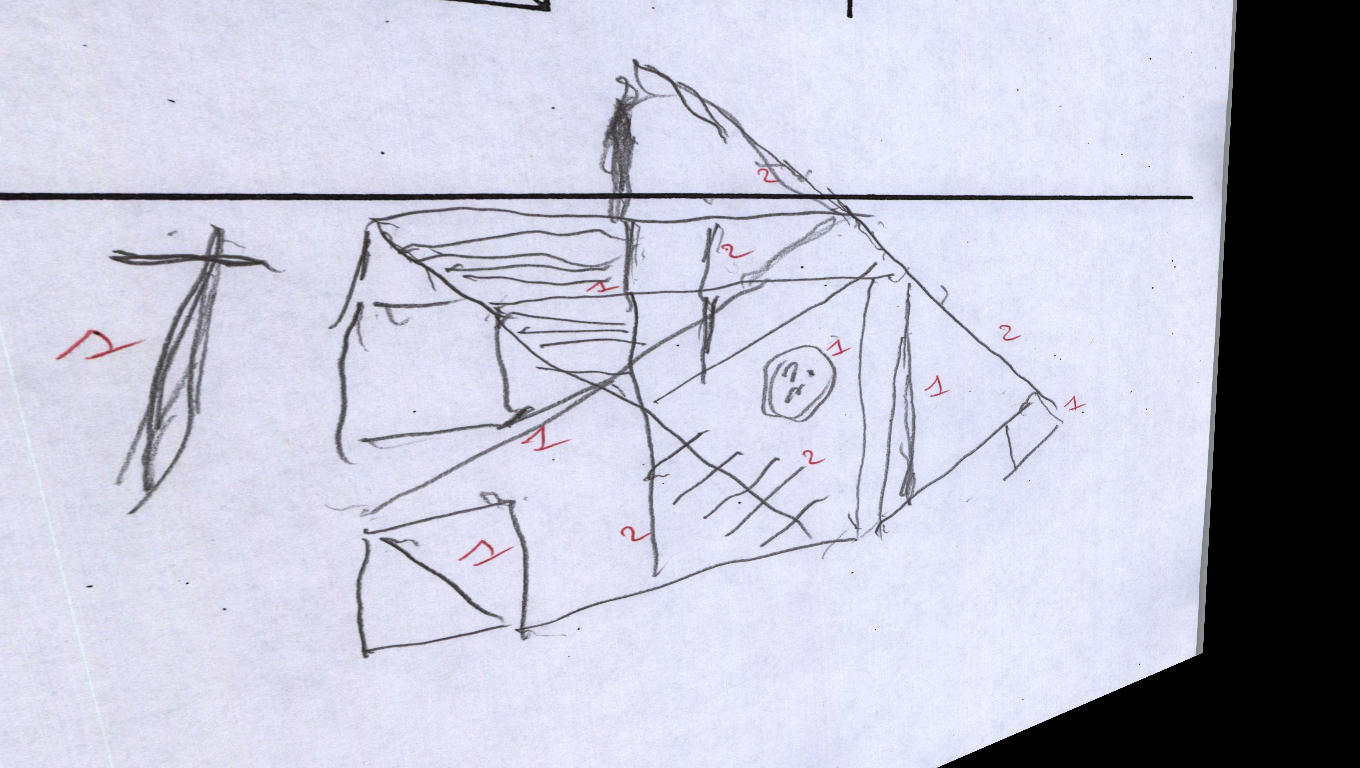 2
2
1
2
1
1
1
1
1
2
2
1